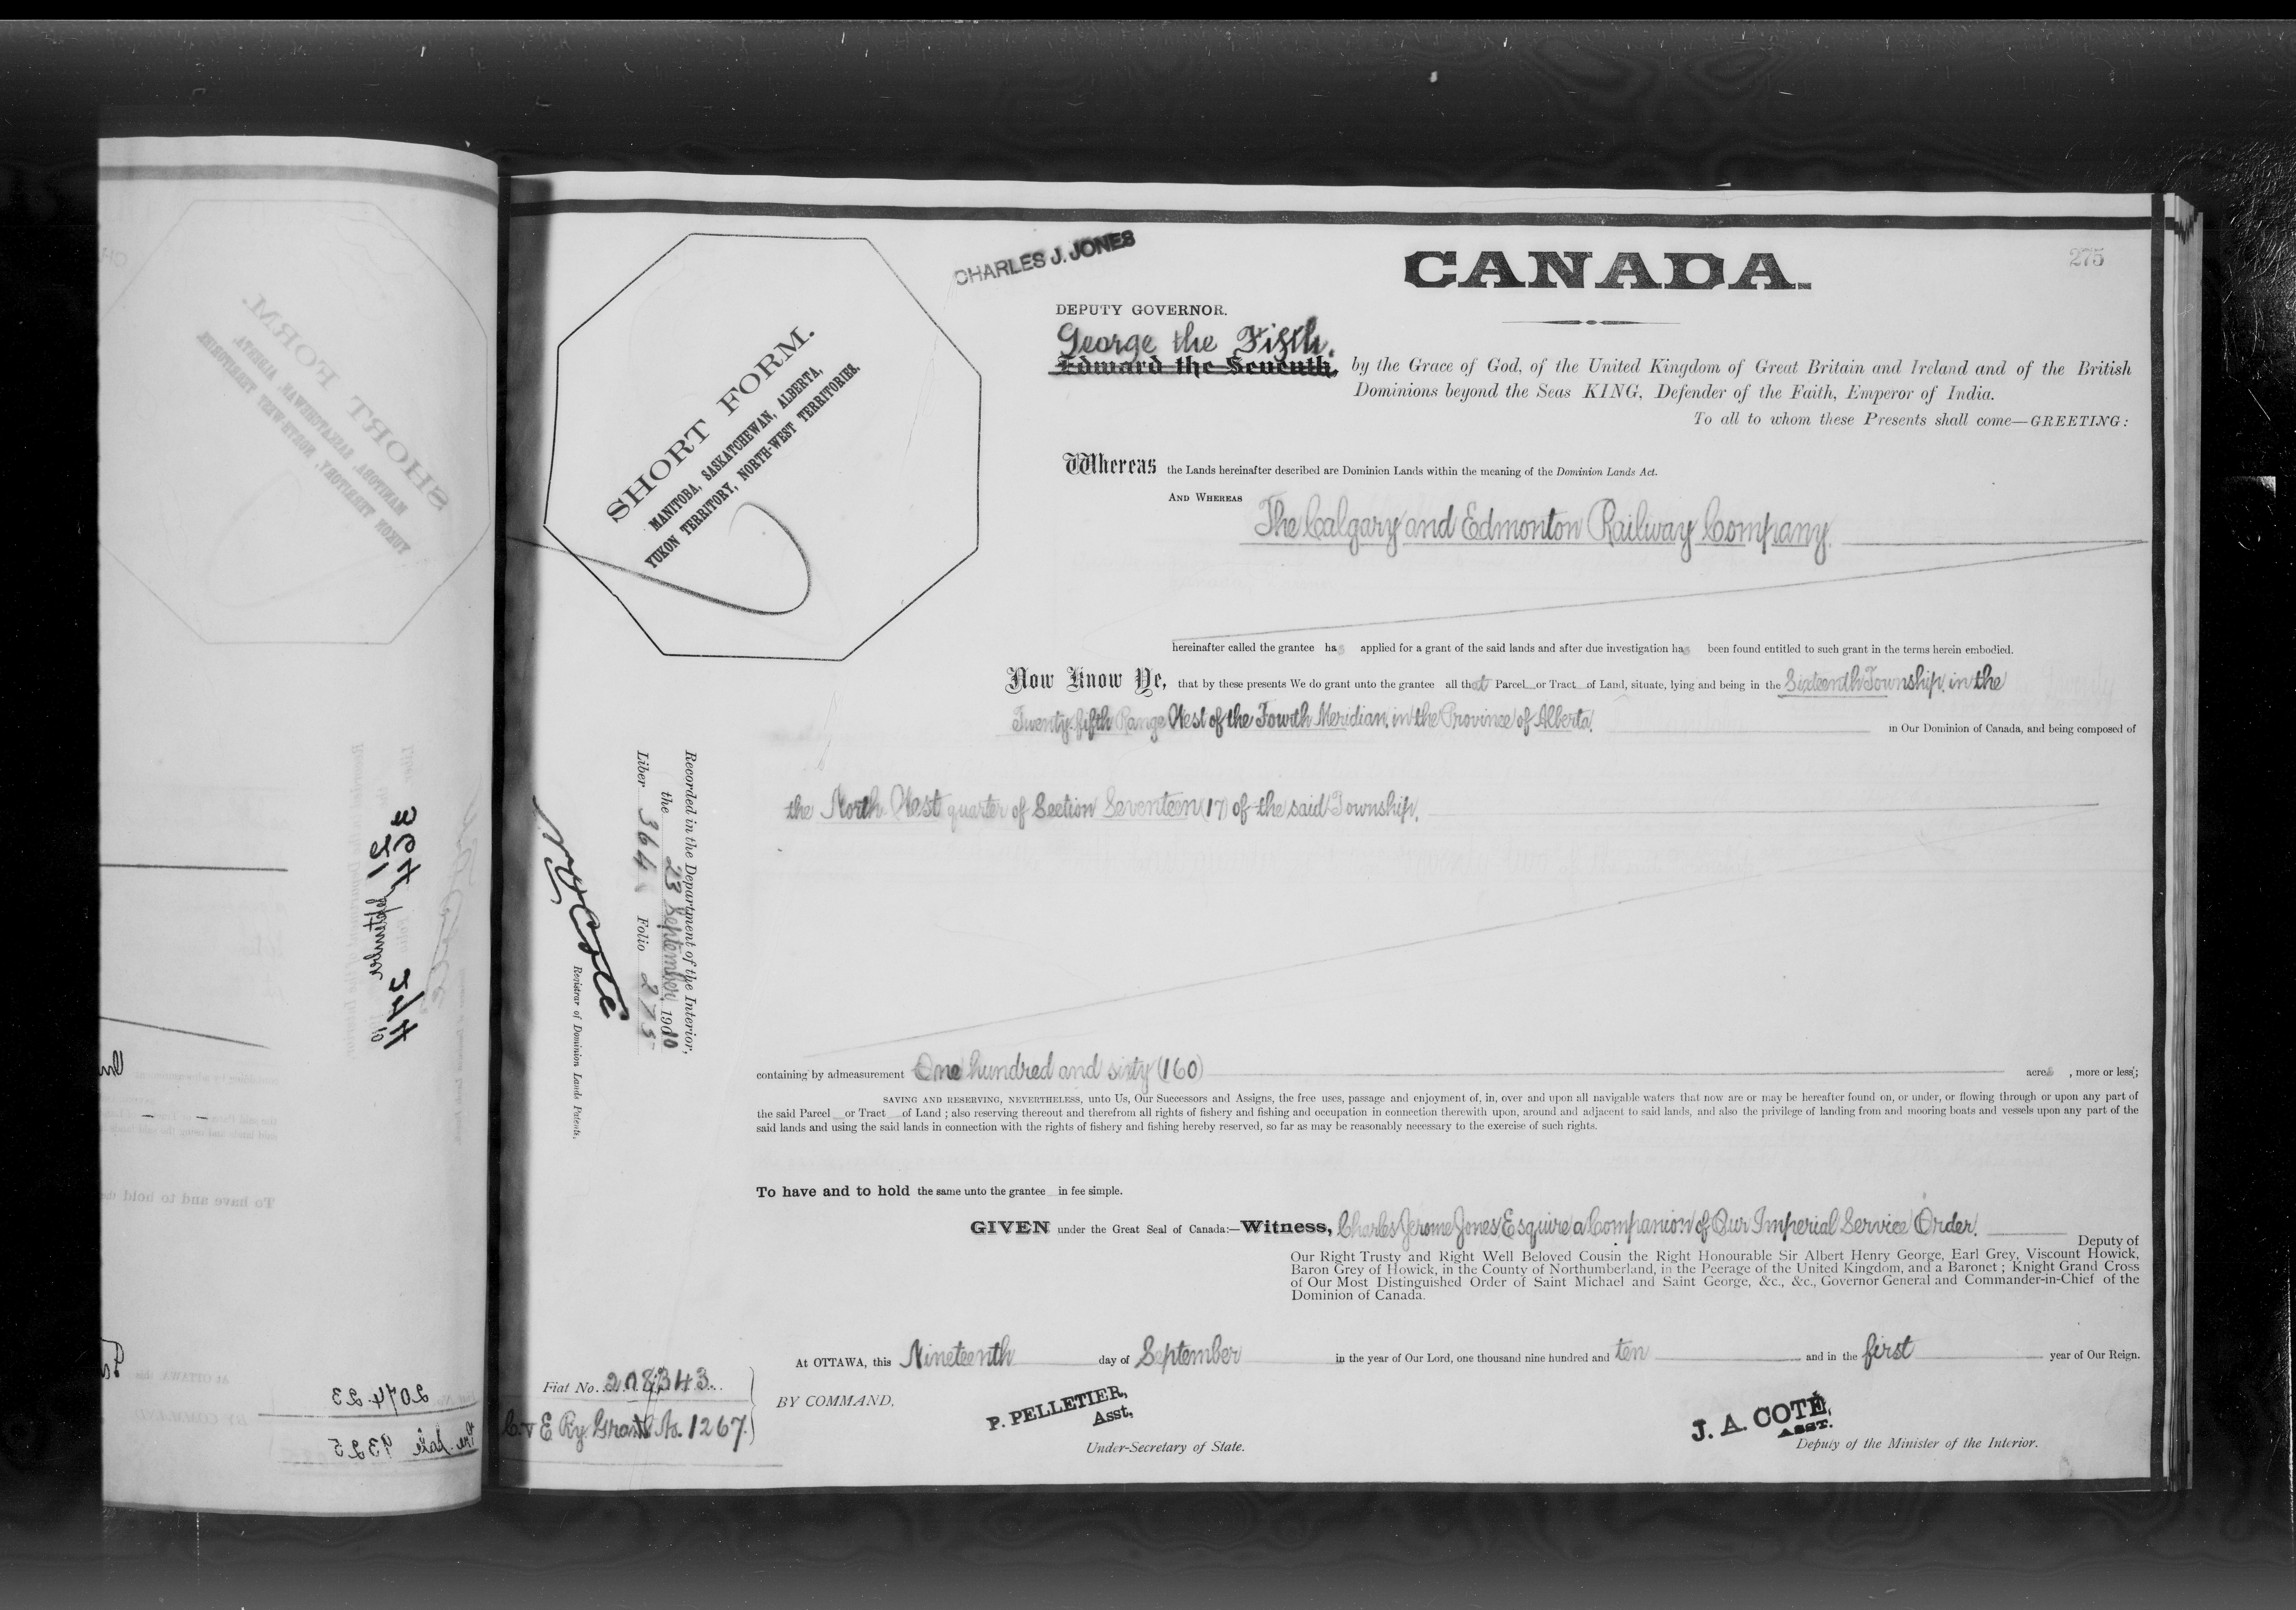 275
CHARLES J. JONES
CANADA.
DEPUTY GOVERNOR.
George the Fifth.
Edward the Seventh, by the Grace of God, of the United Kingdom of Great Britain and Ireland and of the British
Dominions beyond the Seas KING, Defender of the Faith, Emperor of India.
To all to whom these Presents shall come—GREETING:
SHORT FORM.
MANITOBA, SASKATCHEWAN, ALBERTA,
YUKON TERRITORY, NORTH-WEST TERRITORIES.
Whereas the Lands hereinafter described are Dominion Lands within the meaning of the Dominion Lands Act.
AND WHEREAS The Calgary and Edmonton Railway Company.
hereinafter called the grantee has applied for a grant of the said lands and after due investigation has been found entitled to such grant in the terms herein embodied.
Now Know Ye, that by these presents We do grant unto the grantee all that Parcel or Tract of Land, situate, lying and being in the Sixteenth Township, in the
Twenty-fifth Range West of the Fourth Meridian, in the Province of Alberta, in Our Dominion of Canada, and being composed of
the North West quarter of Section Seventeen (17) of the said Township.
Recorded in the Department of the Interior,
the 23 September, 1910
Liber 364 Folio 275
N O Coté
Registrar of Dominion Lands Patents.
containing by admeasurement One hundred and sixty (160) acres, more or less;
SAVING AND RESERVING, NEVERTHELESS, unto Us, Our Successors and Assigns, the free uses, passage and enjoyment of, in, over and upon all navigable waters that now are or may be hereafter found on, or under, or flowing through or upon any part of
the said Parcel or Tract of Land; also reserving thereout and therefrom all rights of fishery and fishing and occupation in connection therewith upon, around and adjacent to said lands, and also the privilege of landing from and mooring boats and vessels upon any part of the
said lands and using the said lands in connection with the rights of fishery and fishing hereby reserved, so far as may be reasonably necessary to the exercise of such rights.
To have and to hold the same unto the grantee in fee simple.
GIVEN under the Great Seal of Canada:—Witness, Charles Jerome Jones, Esquire, a Companion of Our Imperial Service Order, Deputy of
Our Right Trusty and Right Well Beloved Cousin the Right Honourable Sir Albert Henry George, Earl Grey, Viscount Howick,
Baron Grey of Howick, in the County of Northumberland, in the Peerage of the United Kingdom, and a Baronet; Knight Grand Cross
of Our Most Distinguished Order of Saint Michael and Saint George, &c., &c., Governor General and Commander-in-Chief of the
Dominion of Canada.
At OTTAWA, this Nineteenth day of September in the year of Our Lord, one thousand nine hundred and ten and in the first year of Our Reign.
Fiat No. 208343.
C. & E Ry Grant No. 1267.
BY COMMAND,
P. PELLETIER,
Asst,
Under-Secretary of State.
J. A. COTÉ,
ASST.
Deputy of the Minister of the Interior.